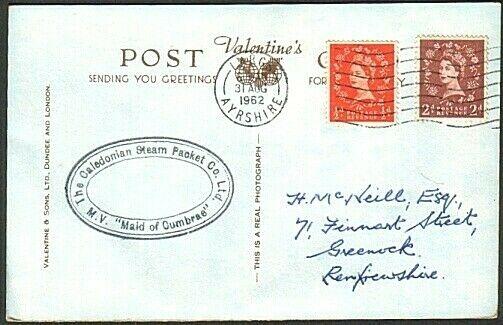 POST Valentine's C
SENDING YOU GREETINGS FOR
LARGS
31 AUG
1962
AYRSHIRE
POSTAGE REVENUE
½ d
POSTAGE REVENUE
2d 2d
The Caledonian Steam Packet Co., Ltd.
M.V. "Maid of Cumbrae"
VALENTINE & SONS, LTD., DUNDEE AND LONDON.
THIS IS A REAL PHOTOGRAPH
H. McNeill, Esq.,
71, Finnart Street,
Greenock,
Renfrewshire.